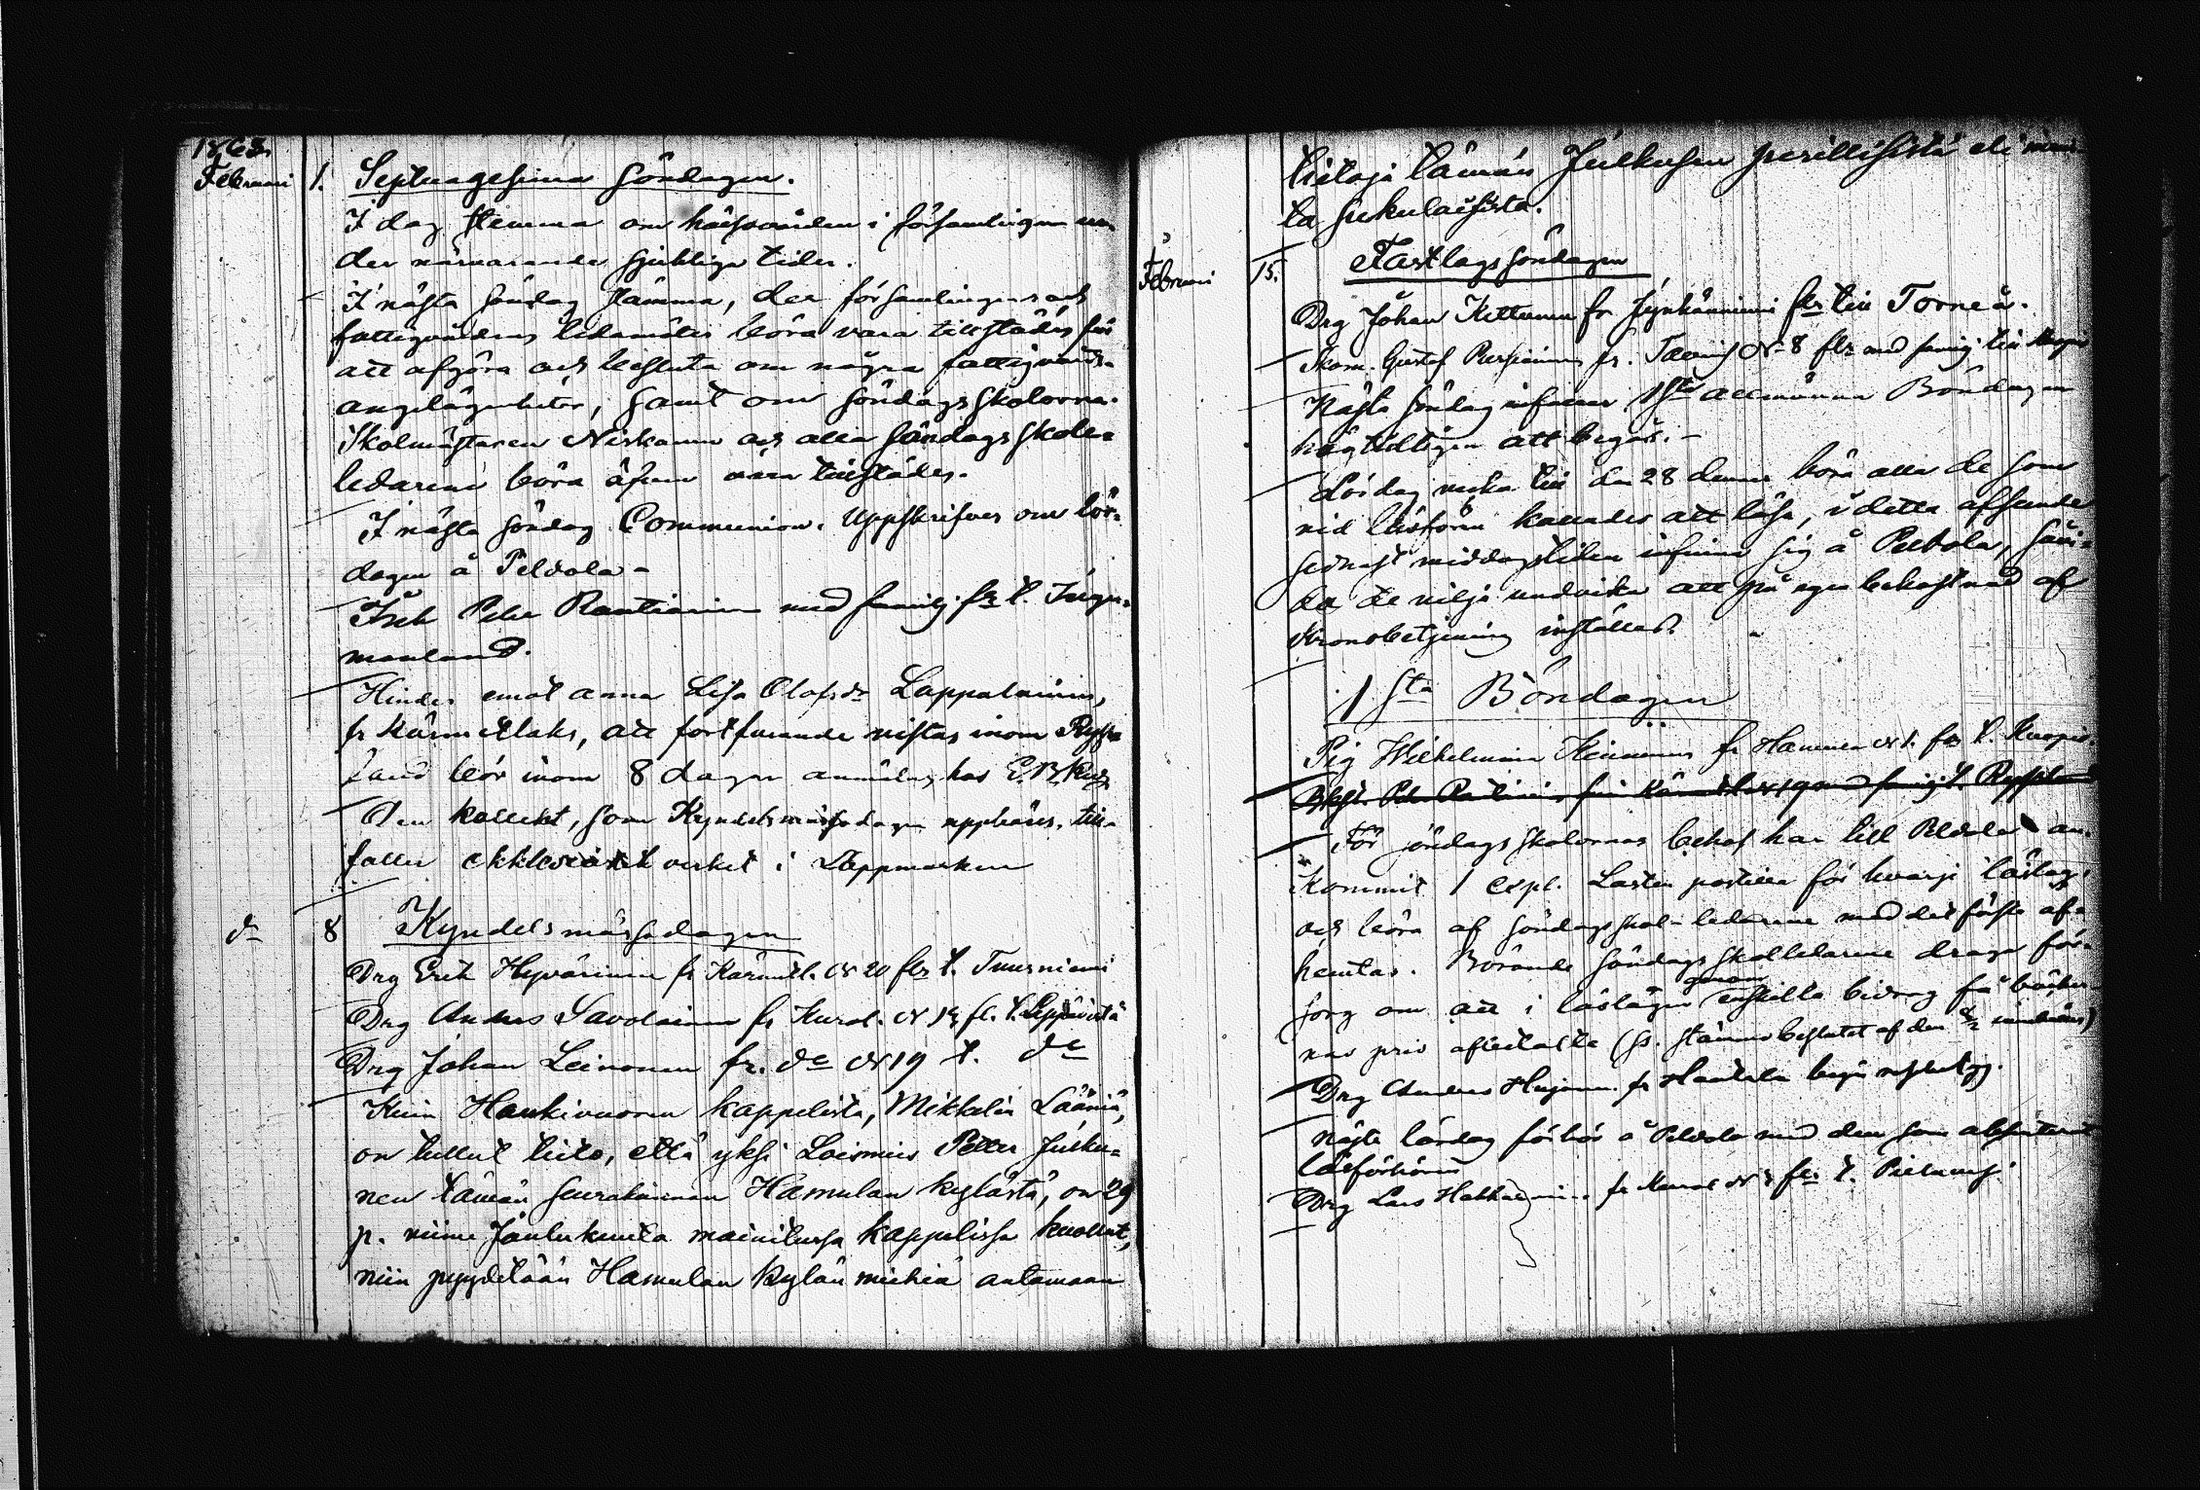 1863
Februari 1. Septuagesima Söndagen.
I dag stemma om helsovården i församlingen un-
der närvarande sjukliga tider.
I nästa söndag stämma, der församlingens och
fattigvårdens ledamöter böra vara tillstädes för
att afgöra och besluta om några fattigvårds-
angelägenheter, samt om söndagsskolorna.
Skolmästaren Niskanen och alla söndagsskole-
ledarene böra äfven vara tillstädes.
I nästa söndag Communion. Uppskrifves om lör-
dagen å Peldola -
Insh Peter Rautiainen med familj fls t. Inger-
manland.
Hinder emot Anna Lisa Olofsdr Lappalainen,
fr Kärmetlaks, att fortfarande vistas inom Ryss-
land bör inom 8 dagar anmälas hos
Den kollekt, som Kyndelsmässodagen uppbäres, till-
faller ecklesiastik verket i Lappmarken
do 8 Kyndelsmässodagen
Drg Erik Hyvärinen fr Kärmetl. N 20 fls t. Tuusniemi
Drg Anders Savolainen fr Kurol. N fl. t. Leppävirta
Drg Johan Leinonen fr. do N 19 t. do
Kuin Haukivuoren kappelista, Mikkelin Lääniä,
on tullut tieto, että yksi Loismies Petter Julku-
nen tämän seurakunnan Hamulan kylästä, on 29
p. viime Joulukuuta mainitussa kappelissa kuollut,
niin pyydetään Hamulan kylän miehiä antamaan
tietoja tämän Julkusen perillisistä eli
ta sukulaisista.
Februari 15. Fastlagssöndagen
Drg Johan Kettunen fr fls till Torneå.
Skom. Gustaf fr. N 8 fls med familj till
Nästa söndag infaller 1sta allmänna Böndagen
högtidligen att begås. -
Lördag vecka till den 28 dennes böra alla de som
vid läsförhör kallades att läsa, i detta afseende
sednast middagstiden infinna sig å Peldola, såvi-
da de vilja undvika att på egen bekostnad af
Kronobetjening inställas.
1sta Böndagen
Pig Wilhelmina fr N 1. fls t. Kuopio.
För söndagsskolornas behof har till Peldola an-
kommit 1 expl. Lasten postilla för hvarje läslag,
och böra af söndagsskol-ledarene med det första af-
hemtas. Börande söndagsskolledarene draga för-
sorg om att i läslagen genom enskilta bidrag få böcker-
nas pris afbetalta (se. stämmobeslutet af den
Drg Anders fr Hautola
Nästa lördag förhör å Peldola med dem som absenterat
läsförhören
Drg Lars fr N fls t. Pielavesi.